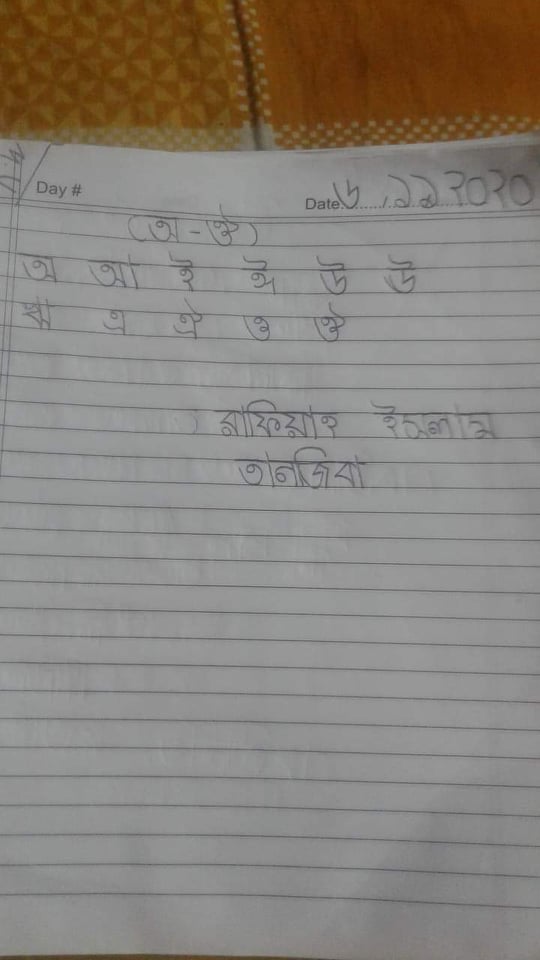 Day #
Date: ৬.১১.২০২০
(অ - ঔ)
অ আ ই ঈ উ ঊ
ঋ এ ঐ ও ঔ
ইসলাম
তানজিবা